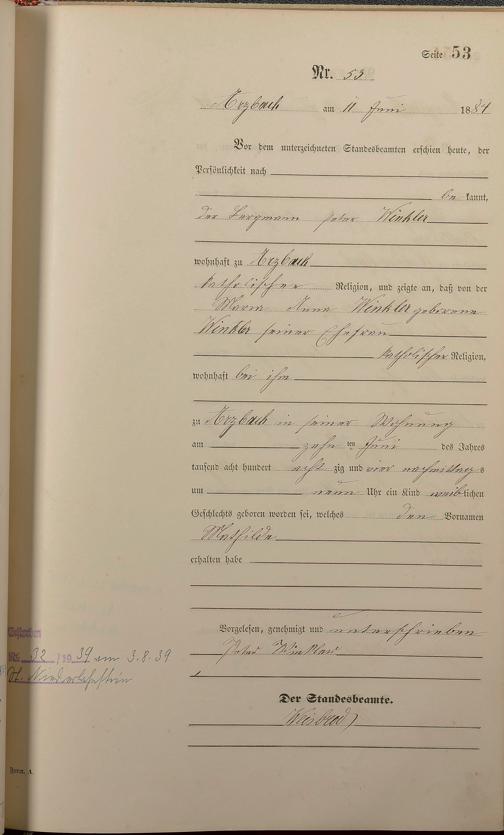 Seite 53
Nr. 53
Arzbach am 11 Juni 1884
Vor dem unterzeichneten Standesbeamten erschien heute, der
Persönlichkeit nach
be kannt,
der Bergmann Peter Winkler
wohnhaft zu Arzbach
katholischer Religion, und zeigte an, daß von der
Maria Anna Winkler geborene
Winkler seiner Ehefrau
katholischer Religion,
wohnhaft bei ihm
zu Arzbach in seiner Wohnung
am zehn ten Juni des Jahres
tausend acht hundert acht zig und vier nachmittags
um neun Uhr ein Kind weiblichen
Geschlechts geboren worden sei, welches den Vornamen
Mathilde
erhalten habe
Vorgelesen, genehmigt und unterschrieben
Peter Winkler
Gestorben
Nr. 32 / 1939 am 3.8.39
St. Niederlahnstein
Der Standesbeamte.
Form. A.